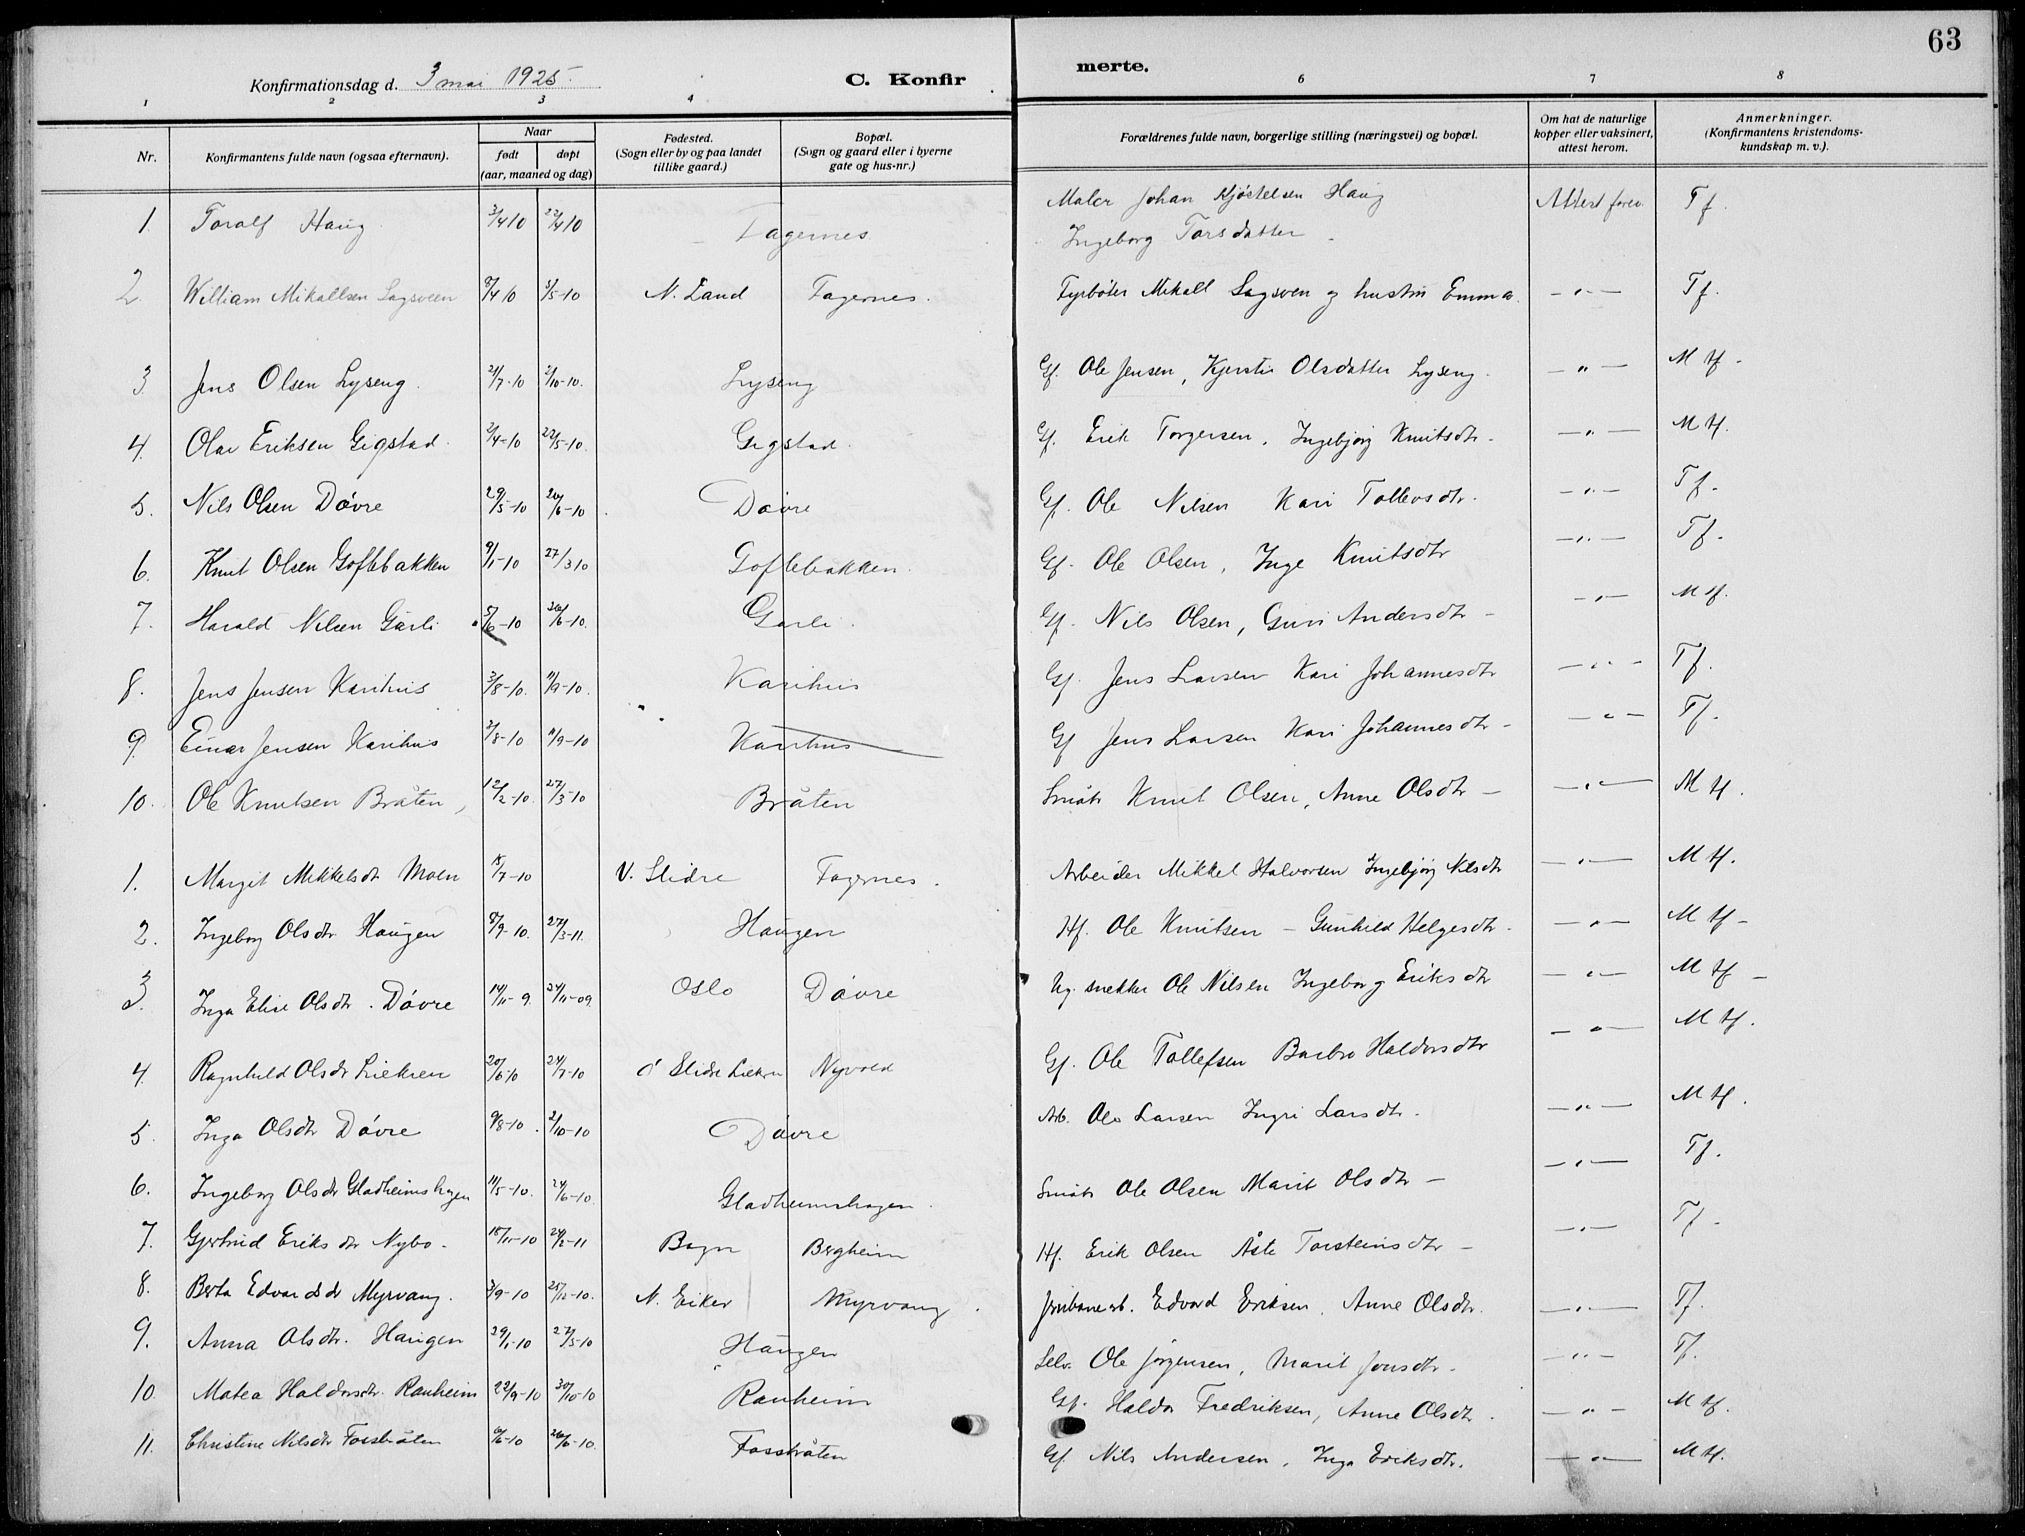 63
Konfirmationsdag d. 3 mai 1925
C. Konfirmerte.
1 2 3 4 6 7 8
Nr.
Konfirmantens fulde navn (ogsaa efternavn).
Naar
født døpt
(aar, maaned og dag)
Fødested.
(Sogn eller by og paa landet
tillike gaard.)
Bopæl.
(Sogn og gaard eller i byerne
gate og hus-nr.)
Forældrenes fulde navn, borgerlige stilling (næringsvei) og bopæl.
Om hat de naturlige
kopper eller vaksinert,
attest herom.
Anmerkninger.
(Konfirmantens kristendoms-
kundskap m. v.).
1 Toralf Haug 3/4 10 22/4 10 Fagernes Maler Johan Kjøstelsen Haug Attest forev. Tf.
Ingeborg Torsdatter
2. William Mikallsen Lagsveen 8/4 10 /5-10 N. Land Fagernes. Fyrbøter Mikall Lagsven og hustru Emma. —"— Tf.
3. Jens Olsen Lyseng. 21/7-10 2/10-10. Lyseng Gf. Ole Jensen, Kjersti Olsdatter Lyseng. —"— M tf.
4. Olav Eriksen Gigstad. 2/4-10 22/5-10. Gigstad. Gf. Erik Torgersen, Ingebjørg Knutsdtr. —"— M tf.
5. Nils Olsen Døvre 29/5-10 26/6-10. Døvre Gf. Ole Nilsen Kari Tollevsdtr. —"— Tf.
6. Knut Olsen Goflebakken 9/1-10 27/3 10 Goflebakken. Gf. Ole Olsen, Inge Knutsdtr —"— Tf.
7. Harald Nilsen Garli 5/6-10 26/6-10. Garli. Gf. Nils Olsen, Guri Andersdtr —"— M tf.
8. Jens Jensen Karihus 3/8-10. 11/9-10. Karihus Gf. Jens Larsen Kari Johannesdtr —"— Tf.
9. Einar Jensen Karihus 3/8-10 11/9-10 Karihus Gf Jens Larsen Kari Johannesdtr —"— Tf.
10. Ole Knutsen Bråten, 12/2-10. 27/3-10 Bråten Småbr Knut Olsen, Anne Olsdtr —"— M tf.
1. Margit Mikkelsdt Moen 15/7-10 V. Slidre Fagernes. Arbeider Mikkel Halvorsen Ingebjørg Nilsdtr —"— M tf.
2. Ingeborg Olsdtr Haugen 8/9-10. 27/3-11. Haugen Hf. Ole Knutsen – Gunhild Helgesdtr. —"— M tf
3. Inga Elise Olsdtr. Døvre 14/11-9. 24/11-09. Oslo Døvre Ug. snekker Ole Nilsen Ingeborg Eriksdtr —"— M tf
4. Ragnhild Olsdr Liekren 20/6 10 24/7-10 Ø Slidre Liekren Nyvold Gf. Ole Tollefsen Barbro Haldorsdtr —"— M tf.
5. Inga Olsdtr Døvre 9/8-10. 2/10-10 Døvre Arb. Ole Larsen Ingri Larsdtr. —"— M tf.
6. Ingeborg Olsdr Gladheimshagen 11/5-10. 24/6-10. Gladheimshagen. Småbr Ole Olsen Marit Olsdtr —"— Tf.
7. Gjertrud Eriksdtr Nybø. 18/11-10 26/2-11 Bagn Bergheim Hf. Erik Olsen Åste Torsteinsdtr —"— Tf.
8. Berta Edvardsdr Myrvang. 3/9-10 25/12-10. N. Eiker Myrvang. Jernbanearb. Edvard Eriksen, Anne Olsdtr. —"— Tf.
9. Anna Olsdtr. Haugen 29/1-10 27/3-10 Haugen Selv. Ole Jørgensen, Marit Jonsdtr. —"— Tf.
10. Matea Haldorsdtr. Ranheim 22/9-10 30/10-10 Ranheim Gf. Haldor Fredriksen, Anne Olsdtr. —"— M tf.
11. Christine Nilsdtr Fossbråten 6/6-10 26/6-10. Fossbråten Gf. Nils Andersen, Inga Eriksdtr. —"— M tf.